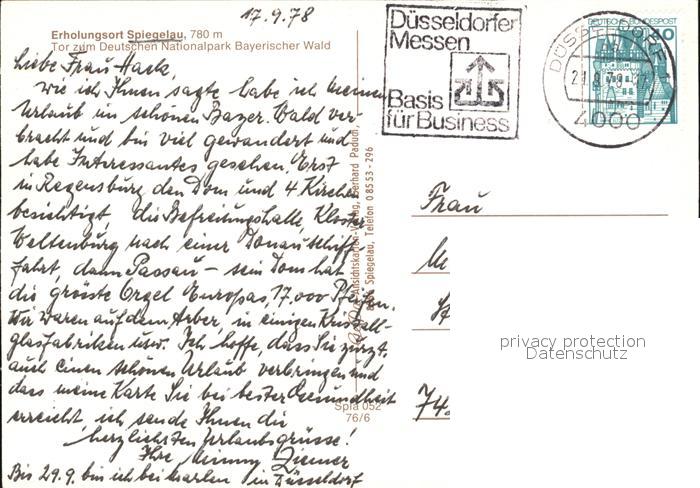 17.9.78
Erholungsort Spiegelau, 780 m
Tor zum Deutschen Nationalpark Bayerischer Wald
Liebe Frau Hack,
wie ich Ihnen sagte habe ich meinen
Urlaub im schönen Bayer. Wald ver-
bracht und bin viel gewandert und
habe Interessantes gesehen. Erst
in Regensburg den Dom und 4 Kirchen
besichtigt, die Befreiungshalle, Kloster
Weltenburg nach einer Donauschiff-
fahrt, dann Passau – sein Dom hat
die grösste Orgel Europas, 17.000 Pfeifen.
Wir waren auf dem Arber, in einigen Kristall-
glasfabriken usw. Ich hoffe, dass Sie zurzt.
auch einen schönen Urlaub verbringen und
dass meine Karte Sie bei bester Gesundheit
erreicht, ich sende Ihnen die
herzlichsten Urlaubsgrüsse!
Ihre Minny Ziemer
Bis 29.9. bin ich bei Marlen in Düsseldorf
Spla 052
76/6
Ansichtskarten-Verlag, Eberhard Paduch,
Spiegelau, Telefon 0 85 53 - 296
Düsseldorfer
Messen
Basis
für Business
DÜSSELDORF
4000
DEUTSCHE BUNDESPOST
40
Frau
74
privacy protection
Datenschutz